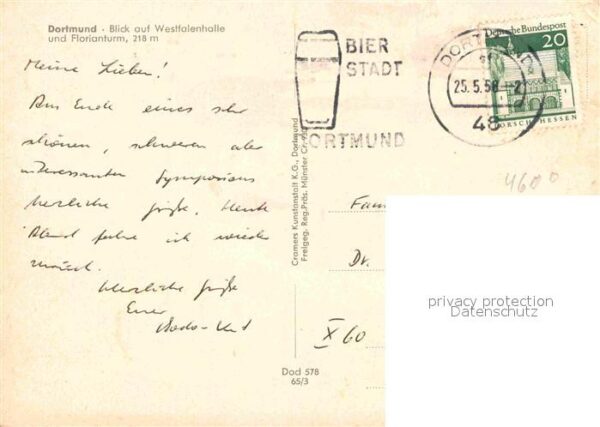 Dortmund · Blick auf Westfalenhalle
und Florianturm, 218 m
Meine Lieben!
Am Ende eines sehr
schönen, schweren aber
interessanten Symposions
herzliche Grüße. Heute
Abend fahre ich wieder
zurück.
Herzliche Grüße
Euer
BIER
STADT
DORTMUND
DORTMUND
25.5.68
48
Deutsche Bundespost
20
LORSCH/HESSEN
4600
Cramers Kunstanstalt K.G., Dortmund
Freigeg. Reg. Präs. Münster
Fam
Dr.
X 60
Dod 578
65/3
privacy protection
Datenschutz